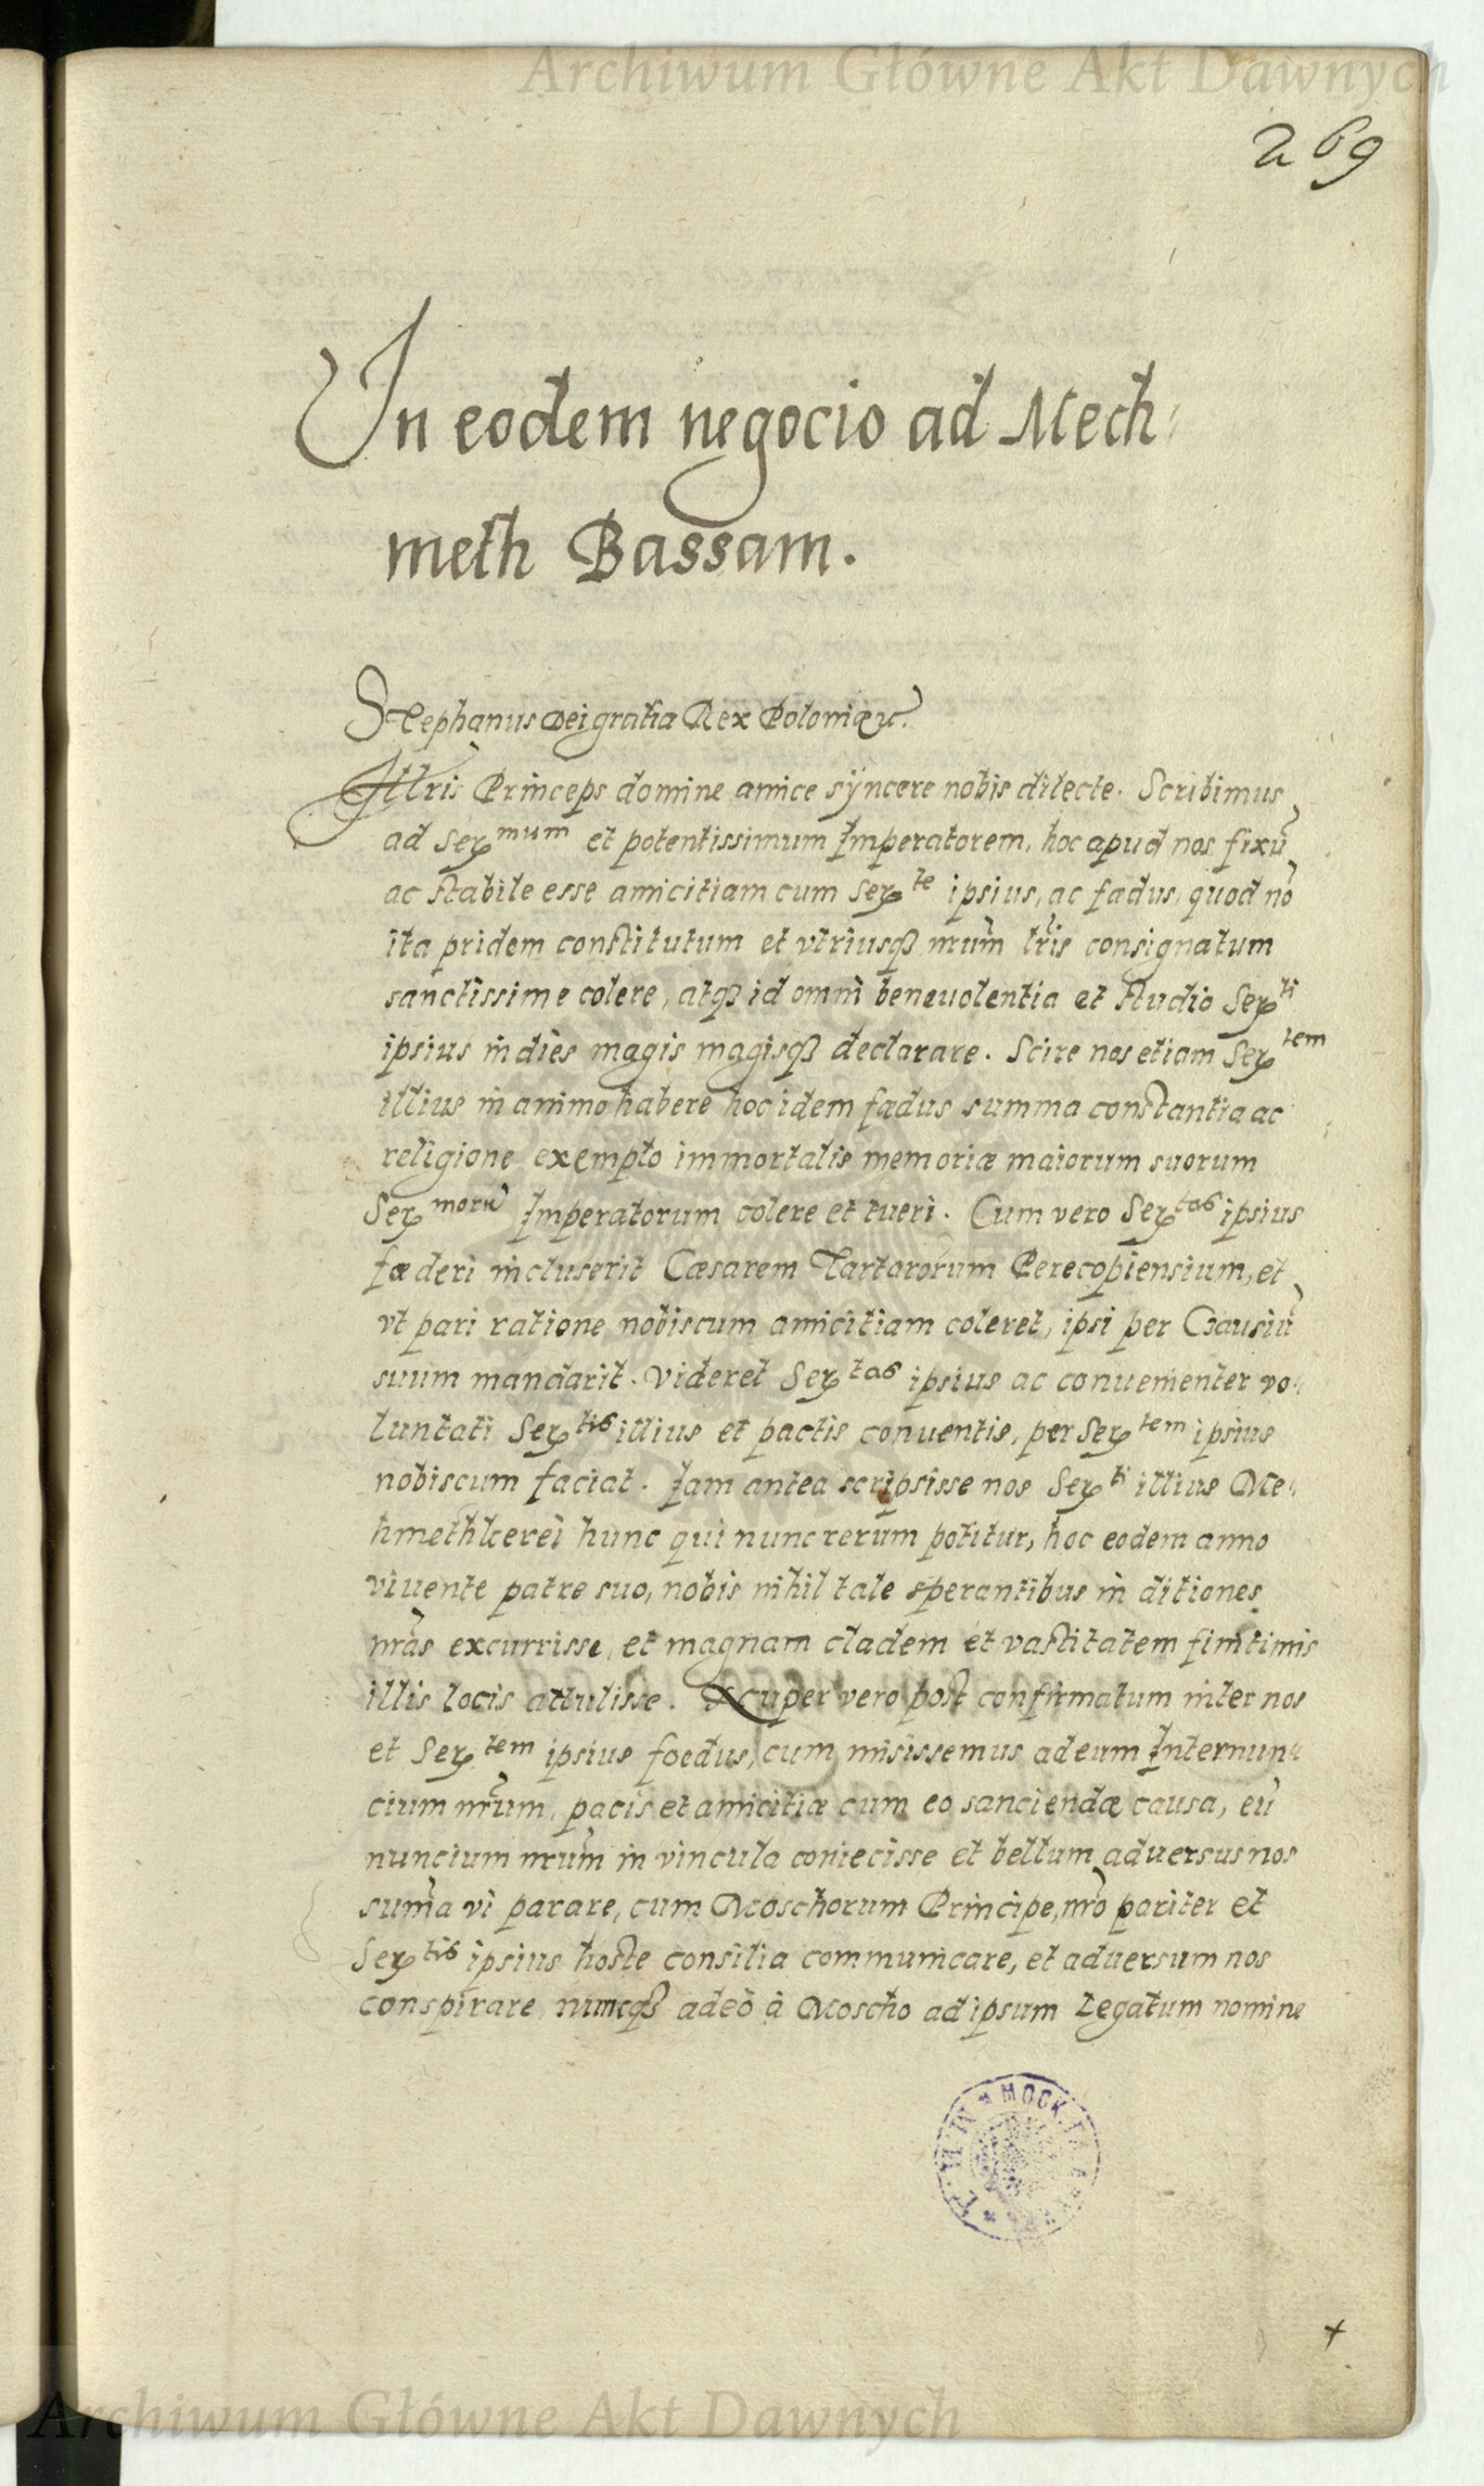 Archiwum Główne Akt Dawnych
269
In eodem negocio ad Mech-
meth Bassam.
Stephanus Dei gratia Rex Poloniæ etc.
Illris Princeps domine amice syncere nobis dilecte. Scribimus
ad Ser^mum et potentissimum Imperatorem, hoc apud nos fixũ
ac stabile esse amicitiam cum Ser^te ipsius, ac fædus, quod nõ
ita pridem constitutum et vtriusq₃ nrũm lrĩs consignatum
sanctissime colere, atq₃ id omni beneuolentia et studio Ser^ti
ipsius in dies magis magisq₃ declarare. Scire nos etiam Ser^tem
illius in animo habere hoc idem fædus summa constantia ac
religione exemplo immortalis memoriæ maiorum suorum
Ser^morũ Imperatorum colere et tueri. Cum vero Ser^tas ipsius
fæderi incluserit Cæsarem Tartarorum Perecopiensium, et
vt pari ratione nobiscum amicitiam coleret, ipsi per Czausiũ
suum mandarit. Videret Ser^tas ipsius ac conuenienter vo-
luntati Ser^tis illius et pactis conuentis, per Ser^tem ipsius
nobiscum faciat. Iam antea scripsisse nos Ser^ti illius Me-
hmethkerei hunc qui nunc rerum potitur, hoc eodem anno
viuente patre suo, nobis nihil tale sperantibus in ditiones
nrãs excurrisse, et magnam cladem et vastitatem finitimis
illis locis attulisse. Nuper vero post confirmatum inter nos
et Ser^tem ipsius foedus, cum misissemus ad eum Internun-
cium nrũm, pacis et amicitiæ cum eo sanciendæ causa, eũ
nuncium nrũm in vincula coniecisse et bellum aduersus nos
sum̃a vi parare, cum Moschorum Principe, nrõ pariter et
Ser^tis ipsius hoste consilia communicare, et aduersum nos
conspirare, nuncq₃ adeò à Moscho ad ipsum Legatum nomine
МОСК
+
Archiwum Główne Akt Dawnych